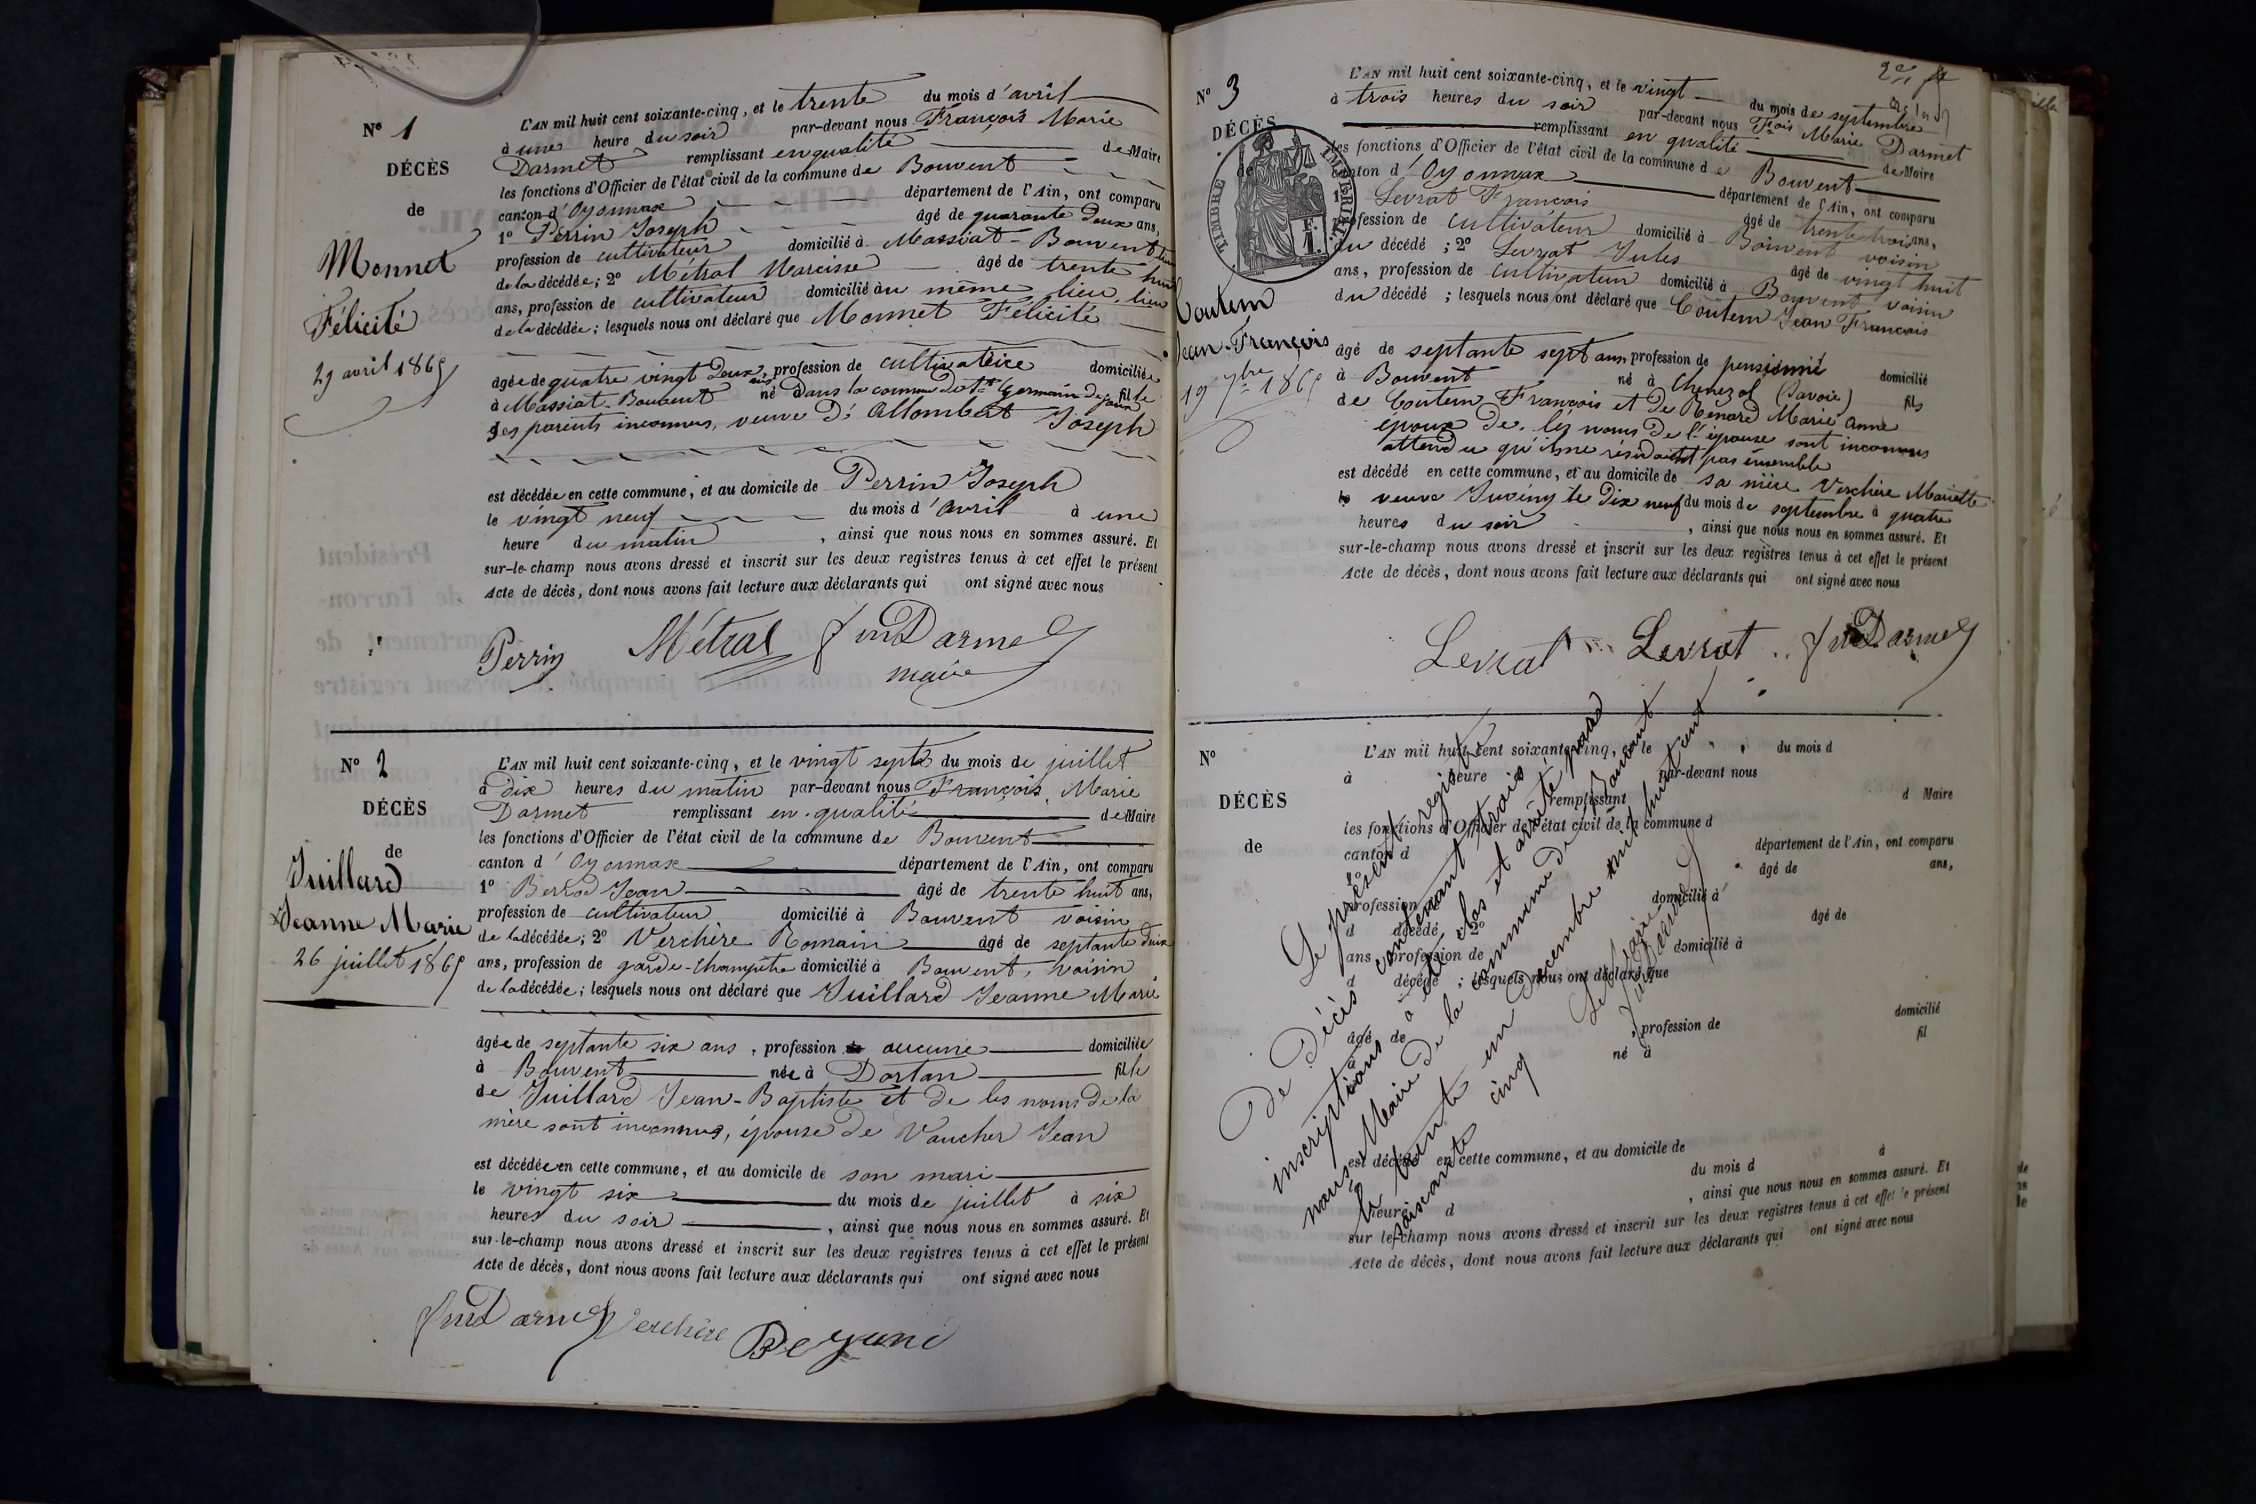 Nº 1
DÉCÈS
de
Monnet
Félicité
29 avril 1865
L'AN mil huit cent soixante-cinq, et le trente du mois d'avril
à une heure du soir par-devant nous François Marie
Darmet remplissant en qualité de Maire
les fonctions d'Officier de l'état civil de la commune de Bouvent
canton d'Oyonnax département de l'Ain, ont comparu
1º Perrin Joseph âgé de quarante deux ans,
profession de cultivateur domicilié à Massiat-Bouvent
de la décédée; 2º Métral Narcisse âgé de trente huit
ans, profession de cultivateur domicilié au même lieu
de la décédée; lesquels nous ont déclaré que Monnet Félicité
âgée de quatre vingt deux ans, profession de cultivatrice domiciliée
à Massiat-Bouvent né dans la commune de St Germain de Joux fille
des parents inconnus, veuve d'Allombert Joseph
est décédée en cette commune, et au domicile de Perrin Joseph
le vingt neuf du mois d'avril à une
heure du matin, ainsi que nous nous en sommes assuré. Et
sur-le-champ nous avons dressé et inscrit sur les deux registres tenus à cet effet le présent
Acte de décès, dont nous avons fait lecture aux déclarants qui ont signé avec nous
Perrin Métral fm Darmet
maire
Nº 2
DÉCÈS
de
Juillard
Jeanne Marie
26 juillet 1865
L'AN mil huit cent soixante-cinq, et le vingt sept du mois de juillet
à dix heures du matin par-devant nous François Marie
Darmet remplissant en qualité de Maire
les fonctions d'Officier de l'état civil de la commune de Bouvent
canton d'Oyonnax département de l'Ain, ont comparu
1º Jean âgé de trente huit ans,
profession de cultivateur domicilié à Bouvent voisin
de la décédée; 2º Verchère Romain âgé de septante deux
ans, profession de garde-champêtre domicilié à Bouvent, voisin
de la décédée; lesquels nous ont déclaré que Juillard Jeanne Marie
âgée de septante six ans, profession aucune domiciliée
à Bouvent née à Dortan fille
de Juillard Jean-Baptiste et de les noms de la
mère sont inconnus, épouse de Vaucher Jean
est décédée en cette commune, et au domicile de son mari
le vingt six du mois de juillet à six
heures du soir, ainsi que nous nous en sommes assuré. Et
sur-le-champ nous avons dressé et inscrit sur les deux registres tenus à cet effet le présent
Acte de décès, dont nous avons fait lecture aux déclarants qui ont signé avec nous
fm Darmet Verchère
Nº 3
DÉCÈS
de
TIMBRE IMPÉRIAL
F. 1.
Coutem
Jean-François
19 7bre 1865
L'AN mil huit cent soixante-cinq, et le vingt du mois de septembre
à trois heures du soir par-devant nous Fçois Marie Darmet
remplissant en qualité de Maire
les fonctions d'Officier de l'état civil de la commune de Bouvent
canton d'Oyonnax département de l'Ain, ont comparu
1º Levrat François âgé de trente trois ans,
profession de cultivateur domicilié à Bouvent voisin
du décédé; 2º Levrat Jules âgé de vingt huit
ans, profession de cultivateur domicilié à Bouvent voisin
du décédé; lesquels nous ont déclaré que Coutem Jean François
âgé de septante sept ans, profession de pensionné domicilié
à Bouvent né à (Savoie) fils
de Coutem François et de Renard Marie Anne
époux de. les noms de l'épouse sont inconnus
attendu qu'ils ne résidaient pas ensemble
est décédé en cette commune, et au domicile de sa mère Verchère Mariette
veuve le dix neuf du mois de septembre à quatre
heures du soir, ainsi que nous nous en sommes assuré. Et
sur-le-champ nous avons dressé et inscrit sur les deux registres tenus à cet effet le présent
Acte de décès, dont nous avons fait lecture aux déclarants qui ont signé avec nous
Levrat Levrat fm Darmet
Nº
DÉCÈS
de
L'AN mil huit cent soixante-cinq, et le du mois d
à heure par-devant nous
remplissant d Maire
les fonctions d'Officier de l'état civil de la commune d
canton d département de l'Ain, ont comparu
1º âgé de ans,
profession domicilié à
d décédé 2º âgé de
ans, profession de domicilié à
d décédé ; lesquels nous ont déclaré que
âgé de profession de domicilié
à né à fil
est décédé en cette commune, et au domicile de
du mois d à
heure d , ainsi que nous nous en sommes assuré. Et
sur le-champ nous avons dressé et inscrit sur les deux registres tenus à cet effet le présent
Acte de décès, dont nous avons fait lecture aux déclarants qui ont signé avec nous
Le présent registre
de Décès contenant trois
inscriptions a été clos et arrêté par
nous Maire de la commune de Bouvent
le trente un Décembre mil huit cent
soixante cinq
Le Maire
fm Darmet